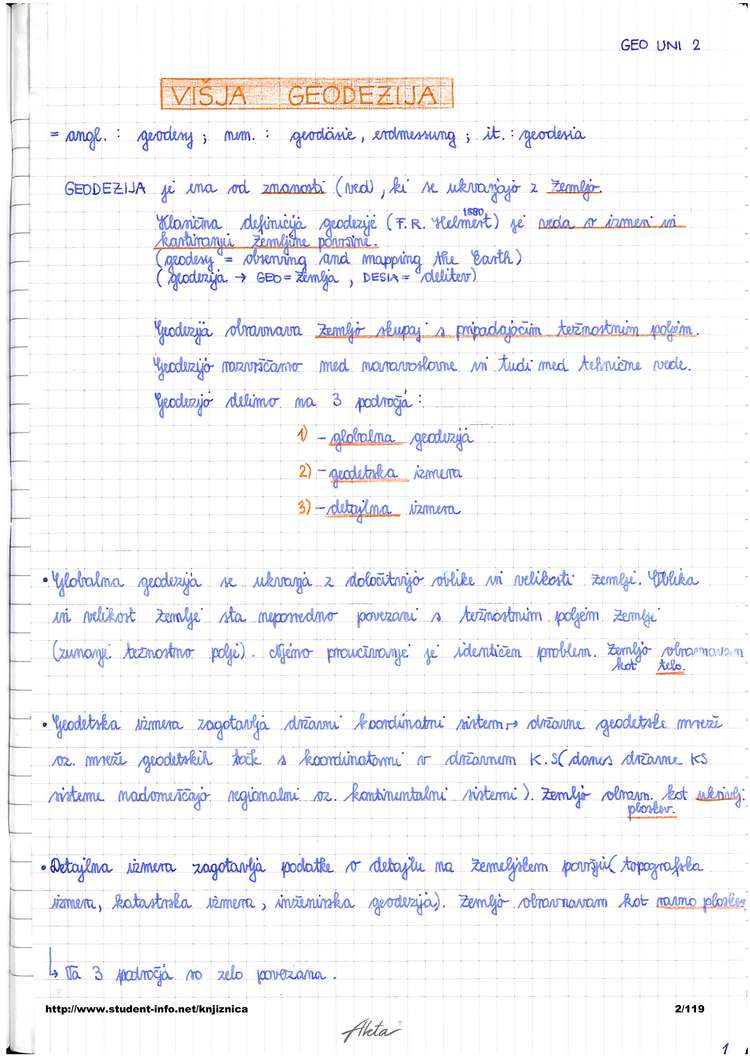 GEO UNI 2
VIŠJA GEODEZIJA
= angl. : geodesy ; nem. : geodäsie , erdmessung ; it. : geodesia
GEODEZIJA je ena od znanosti (ved) , ki se ukvarjajo z Zemljo.
Klasična definicija geodezije (F. R. Helmert) 1880 je veda o izmeri in
kartiranju Zemljine površine.
(geodesy = observing and mapping the Earth)
(geodezija → GEO = Zemlja , DESIA = delitev)
Geodezija obravnava Zemljo skupaj s pripadajočim težnostnim poljem.
Geodezijo razvrščamo med naravoslovne in tudi med tehnične vede.
Geodezijo delimo na 3 področja :
1) - globalna geodezija
2) - geodetska izmera
3) - detajlna izmera
• Globalna geodezija se ukvarja z določitvijo oblike in velikosti Zemlje. Oblika
in velikost Zemlje sta neposredno povezani s težnostnim poljem Zemlje
(zunanje težnostno polje). Njemo proučevanje je identičen problem. Zemljo obravnavam
kot telo.
• Geodetska izmera zagotavlja državni koordinatni sistem → državne geodetske mreže
oz. mreže geodetskih točk s koordinatami v državnem K.S (danes državne KS
sisteme nadomeščajo regionalni oz. kontinentalni sistemi). Zemljo obravn. kot ukrivlj.
ploskev.
• Detajlna izmera zagotavlja podatke o detajlu na zemeljskem površju (topografska
izmera, katastrska izmera , inženirska geodezija). Zemljo obravnavam kot ravno ploskev
↳ Ta 3 področja so zelo povezana .
http://www.student-info.net/knjiznica 2/119
Akta
1